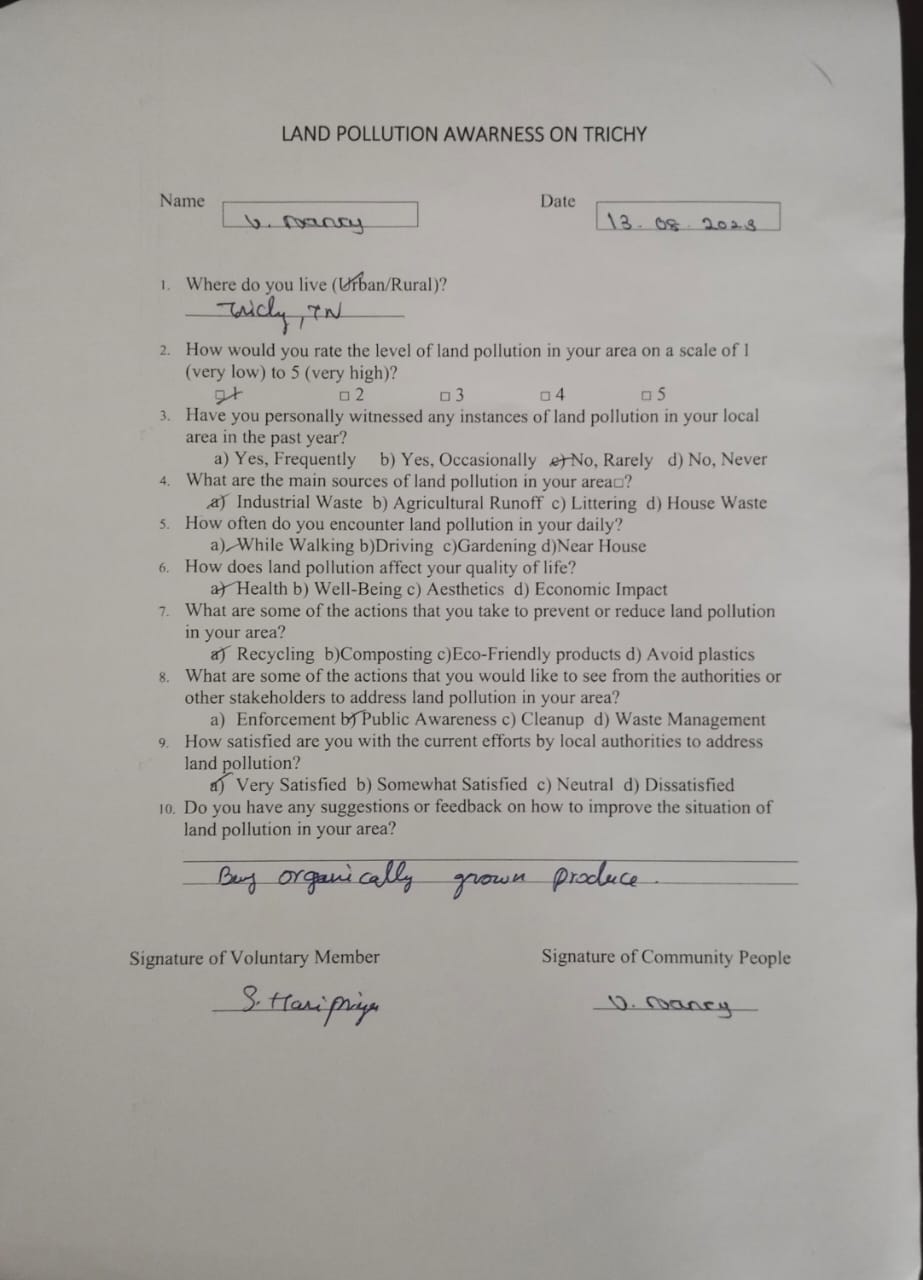 LAND POLLUTION AWARNESS ON TRICHY
Name V. Nancy Date 13.08.2023
1. Where do you live (Urban/Rural)?
Trichy, TN
2. How would you rate the level of land pollution in your area on a scale of 1
(very low) to 5 (very high)?
□ 1 □ 2 □ 3 □ 4 □ 5
3. Have you personally witnessed any instances of land pollution in your local
area in the past year?
a) Yes, Frequently b) Yes, Occasionally c) No, Rarely d) No, Never
4. What are the main sources of land pollution in your area□?
a) Industrial Waste b) Agricultural Runoff c) Littering d) House Waste
5. How often do you encounter land pollution in your daily?
a) While Walking b)Driving c)Gardening d)Near House
6. How does land pollution affect your quality of life?
a) Health b) Well-Being c) Aesthetics d) Economic Impact
7. What are some of the actions that you take to prevent or reduce land pollution
in your area?
a) Recycling b)Composting c)Eco-Friendly products d) Avoid plastics
8. What are some of the actions that you would like to see from the authorities or
other stakeholders to address land pollution in your area?
a) Enforcement b) Public Awareness c) Cleanup d) Waste Management
9. How satisfied are you with the current efforts by local authorities to address
land pollution?
a) Very Satisfied b) Somewhat Satisfied c) Neutral d) Dissatisfied
10. Do you have any suggestions or feedback on how to improve the situation of
land pollution in your area?
Buy organically grown produce.
Signature of Voluntary Member Signature of Community People
S. Haripriya V. Nancy